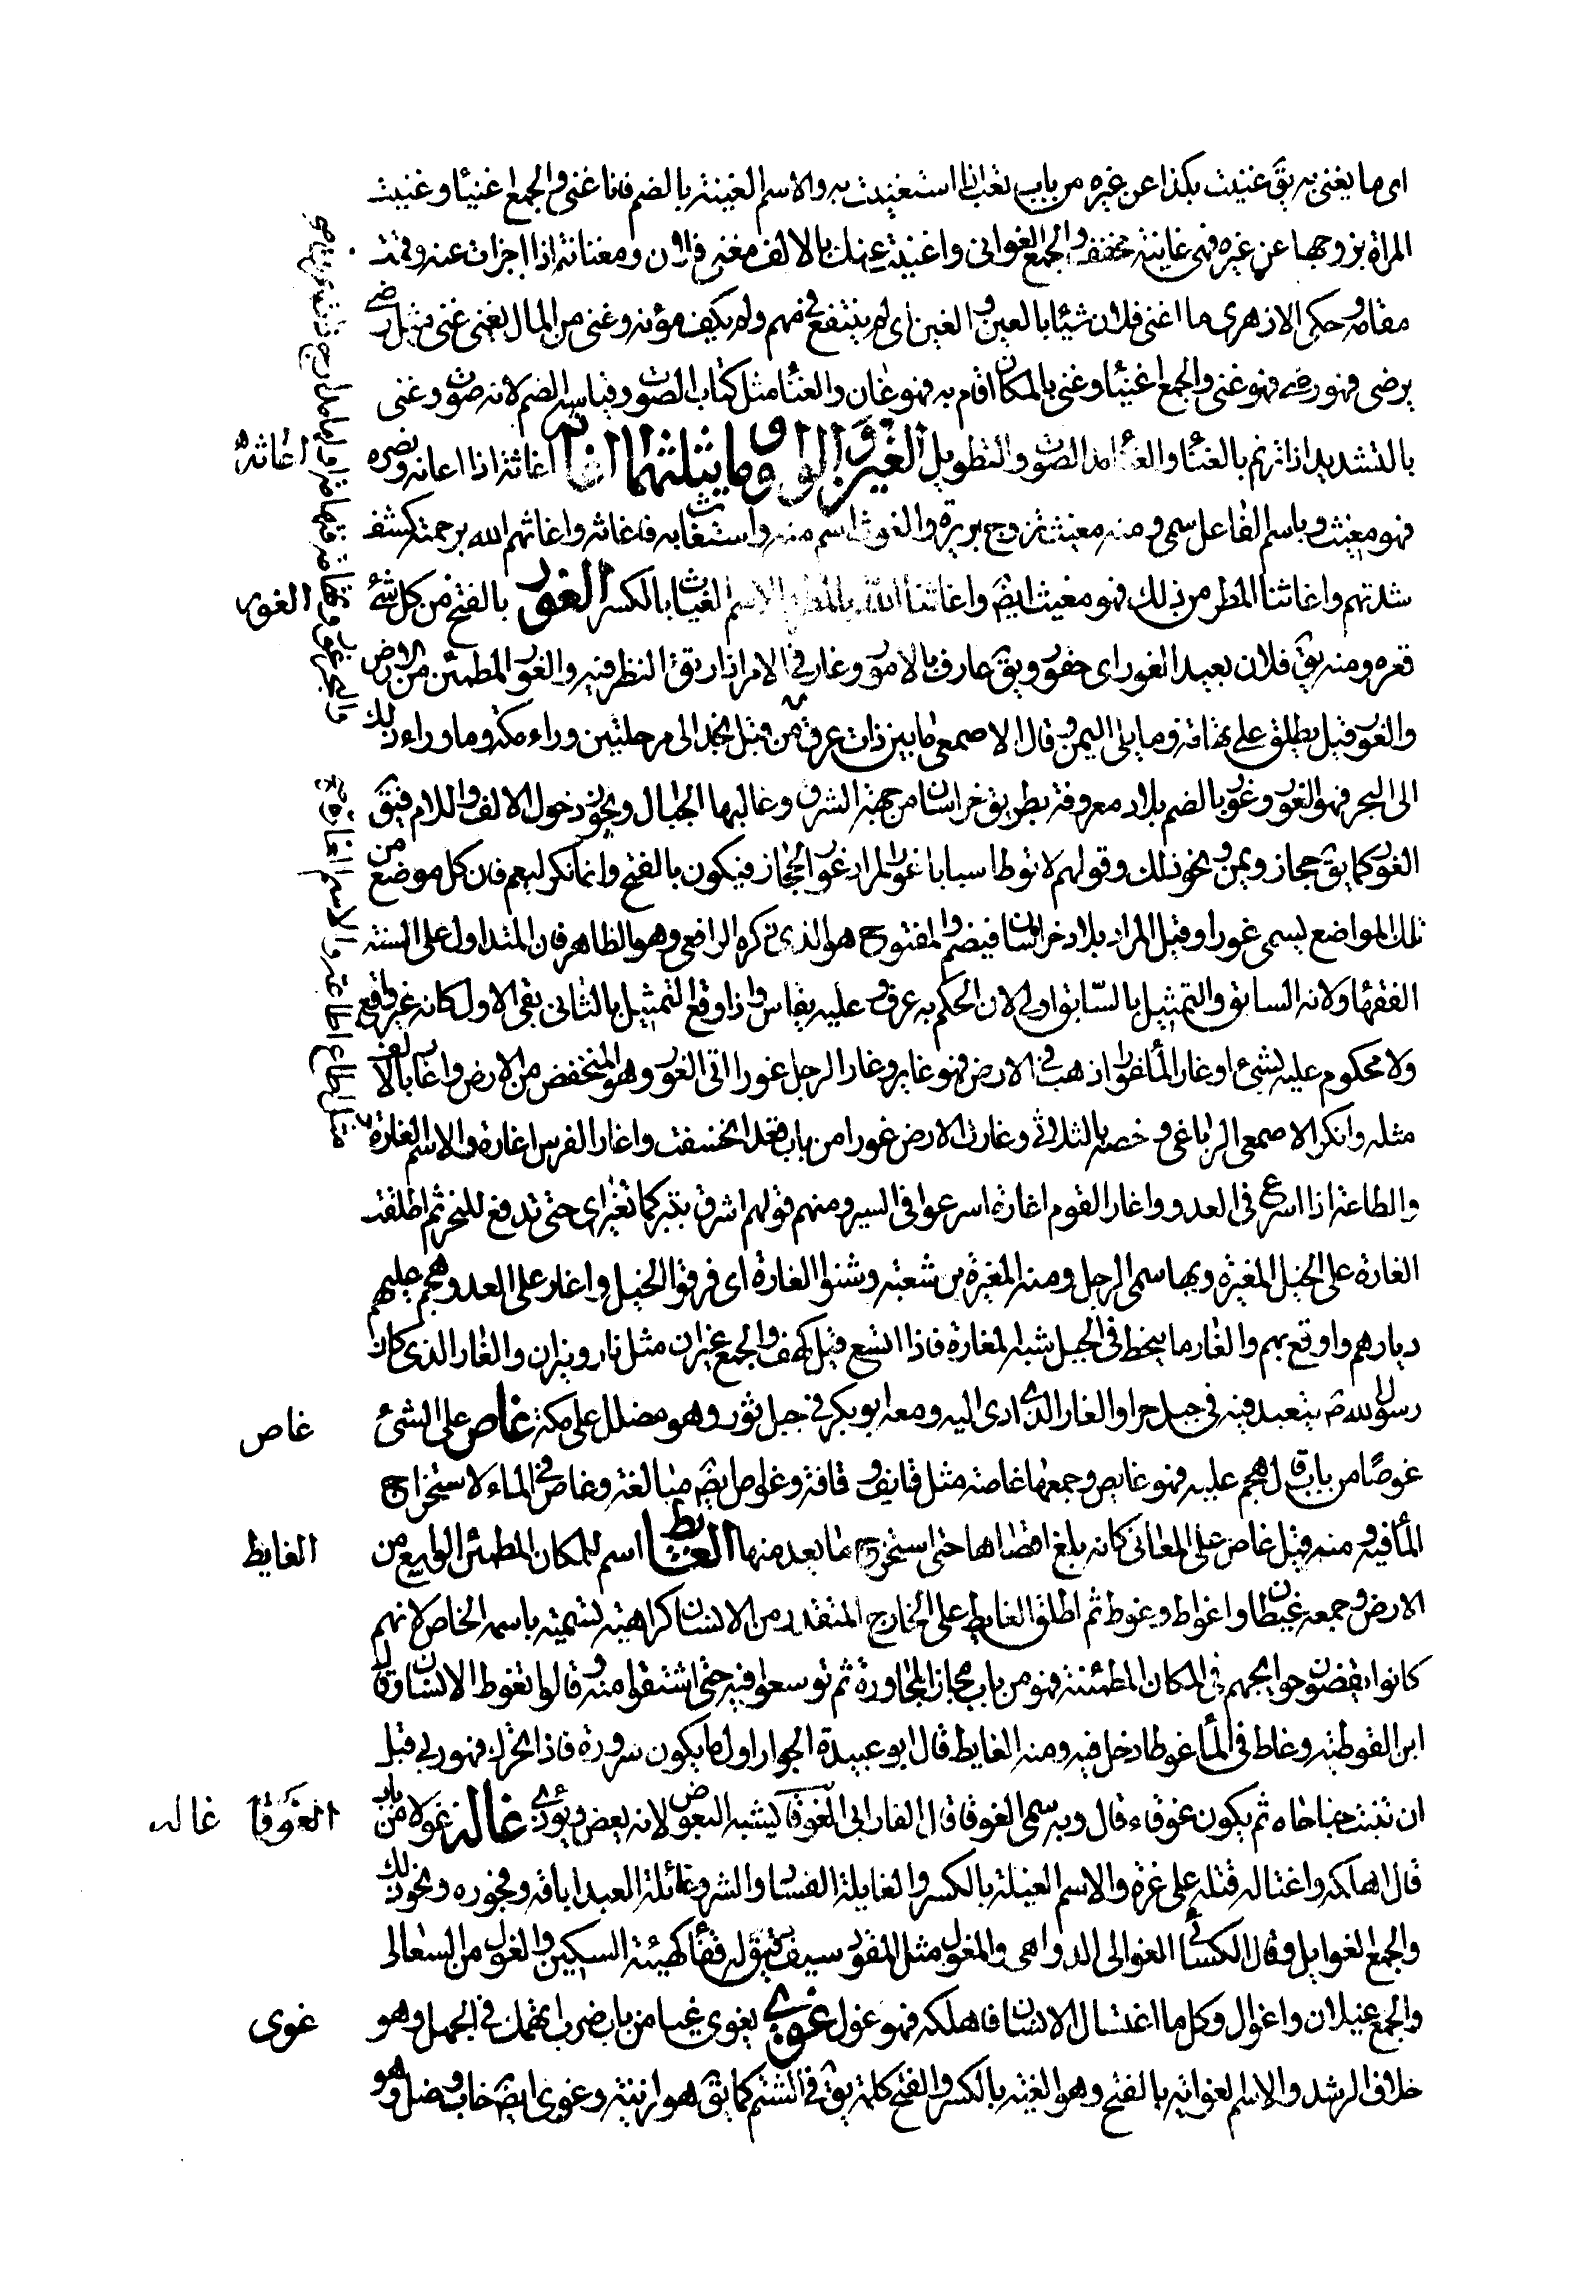 اى ما يغنى به يق غنيت بكذا عن غيره من باب تعب اذا استغنيت به والاسم الغنية بالضم فانا غنى والجمع اغنيا وغنيت
المراة بزوجها عن غيره فهى غانية مخفف والجمع الغوانى واغنيت عنك بالالف مغنى فلان ومغناته اذا اجزات عنه وقمت
مقامه وحكى الازهرى ما اغنى فلان شيئا بالعين و الغين اى لم ينتفع فى مهم ولم يكف مؤنه وغنى من المال يغنى غنى مثل رضى
يرضى فهو رضى فهو غنى والجمع اغنيا وغنى بالمكان اقام به فهو غان والغنا مثل كتاب الصوت وقياسه الضم لانه صوت وغنى
بالتشديد اذا ترنم بالغنا والغنا مد الصوت والتطويل الغين والواو وما يثلثهما اغاثه اغاثة اذا اعانه ونصره
اغاثه
فهو مغيث وباسم الفاعل سمى ومنه مغيث زوج بريرة والغوث اسم منه واستغاث به فاغاثه واغاثهم الله برحمته كشف
شدتهم واغاثنا المطر من ذلك فهو مغيث ايضً واغاثنا الله بالمطر والاسم الغياث بالكسر الغور بالفتح من كل شئ
الغور
قعره ومنه يق فلان بعيد الغور اى حقود ويق عارف بالامور وغار فى الامر اذا دقق النظر فيه والغور المطمئن من الارض
والغور قيل يطلق على تهامة وما يلى اليمن وقال الاصمعى ما بين ذات عرق من قبل نجد الى مرحلتين وراء مكة وما وراء ذلك
الى البحر فهو الغور وغور بالضم بلاد معروفة بطريق خراسان من جهة الشرق وغالبها الجبال ويجوز دخول الالف واللام فيق
الغور كما يق حجاز ويمن ونحو ذلك وقولهم لا توطا سبايا غور المراد غور الحجاز فيكون بالفتح وانما نكر ليعم فان كل موضع من
تلك المواضع يسمى غورا وقيل المراد بلاد خراسان فيضم والمفتوح هو الذى ذكره الرافعى وهو الظاهر فان المتداول على السنة
الفقها ولانه السابق والتمثيل بالسابق اولى لان الحكم به عرف و عليه يقاس واذا وقع التمثيل بالثانى بقى الاول كانه غير واقع
ولا محكوم عليه بشئ او غار الماء غورا ذهب فى الارض فهو غاير وغار الرجل غورا اتى الغور وهو المنخفض من الارض واغار بالالف
مثله وانكر الاصمعى الرباعى و خصه بالثلاثى وغارت الارض غورا من باب قعد انخسفت واغار الفرس اغارة والاسم الغارة
والطاعة اذا اسرع فى العدو واغار القوم اغارة اسرعوا فى السير ومنهم قولهم اشرق ثبير كما نغير اى حتى ندفع للنحر ثم اطلقت
الغارة على الخيل المغيرة وبها سمى الرجل ومنه المغيرة بن شعبة وشنوا الغارة اى فرقوا الخيل واغار على العدو هجم عليهم
ديارهم واوقع بهم والغار ما ينحط فى الجبل شبه المغارة فاذا اتسع قيل كهف والجمع غيران مثل نار ونيران والغار الذى كان
رسول الله ص يتعبد فيه فى جبل حرا والغار الذى اوى اليه ومعه ابو بكر فى جبل ثور وهو مضلل على مكة غاص على الشئ
غاص
غوصًا من باب قال هجم عليه فهو غايص وجمعها غاصة مثل قايف و قافة وغواص ايضً مبالغة وغاص فى الماء لاستخراج
الما فيه ومنه قيل غاص على المعانى كانه بلغ اقصاها حتى استخرج ما بعد منها الغايط اسم للمكان المطمئن الواسع من
الغايط
الارض و جمعه غيطان واغواط وغوط ثم اطلق الغايط على الخارج المتقذر من الانسان كراهية لتسميته باسمه الخاص لانهم
كانوا يقضون حوايجهم فى المكان المطمئنة فهو من باب مجاز المجاورة ثم توسعوا فيه حتى اشتقوا منه وقالوا تغوط الانسان قاله
ابن القوطية وغاط فى الما غوطا دخل فيه ومنه الغايط قال ابو عبيدة الجراد اول ما يكون سروة فاذا تحرك فهو دبى قبل
ان تنبت جناحاه ثم يكون غوغاء قال وبه سمى الغوغا قال الفارابى الغوغا يشبه البعوض لانه يعض ويؤذى غاله غولا من باب
الغوغا غاله
قال اهلكه واغتاله قتله على غرة والاسم الغيلة بالكسر والغايلة الفساد والشر وغائلة العبد اباقه وفجوره ونحو ذلك
والجمع الغوايل وقال الكسائى الغوايل الدواهى والمغول مثل المقود سيف دقيق له قفا كهيئة السكين والغول من السعالى
والجمع غيلان واغوال وكل ما اغتال الانسان فاهلكه فهو غول غوى يغوى غيا من باب ضرب انهمك فى الجهل وهو
غوى
خلاف الرشد والاسم الغواية بالفتح وهو الغية بالكسر والفتح كلمة يق فى الشتم كما يق هو ازنية وغوى ايضً خاب و ضل وهو
والاسم الغارة
مثل اطاع اطاعة